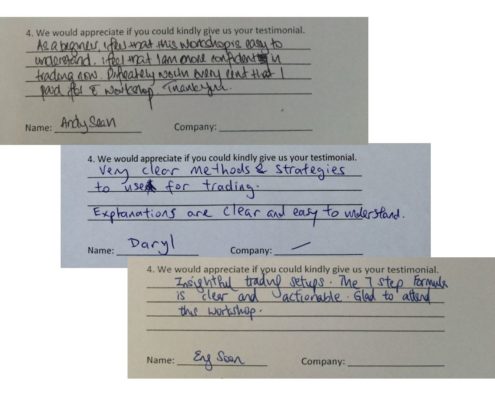 4. We would appreciate if you could kindly give us your testimonial.
As a beginner, I feel that this workshop is easy to
understand. I feel that I am more confident in
trading now. Definitely worth every cent that I
paid for & workshop. Thank you.
Name: Andy Sean Company:
4. We would appreciate if you could kindly give us your testimonial.
Very clear methods & strategies
to use for trading.
Explanations are clear and easy to understand.
Name: Daryl Company: /
4. We would appreciate if you could kindly give us your testimonial.
Insightful trading setups. The 7 step Formula
is clear and actionable. Glad to attend
this workshop.
Name: Soon Company: